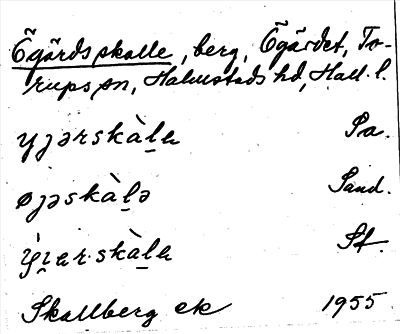 Ögärdsskalle, berg, Ögärdet, To-
rups sn, Halmstads hd, Hall. l.
yjərskàl̠a Sa.
øjəskàl̠ə Sand.
Skallberg ek 1955